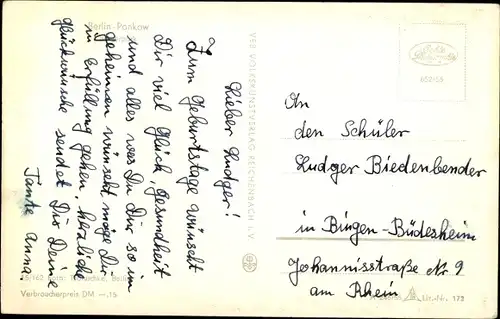 Berlin-Pankow
Lieber Ludger!
Zum Geburtstage wünscht
Dir viel Glück, Gesundheit
und alles was Du Dir so im
geheimen wünscht möge Dir
in Erfüllung gehen, herzliche
Glückwünsche sendet Dir Deine
Tante Anna
VEB VOLKSKUNSTVERLAG REICHENBACH i. V.
652/55
An
den Schüler
Ludger Biedenbender
in Bingen-Büdesheim
Johannisstraße Nr 9
am Rhein
Verbraucherpreis DM —,15
Lit.-Nr. 172